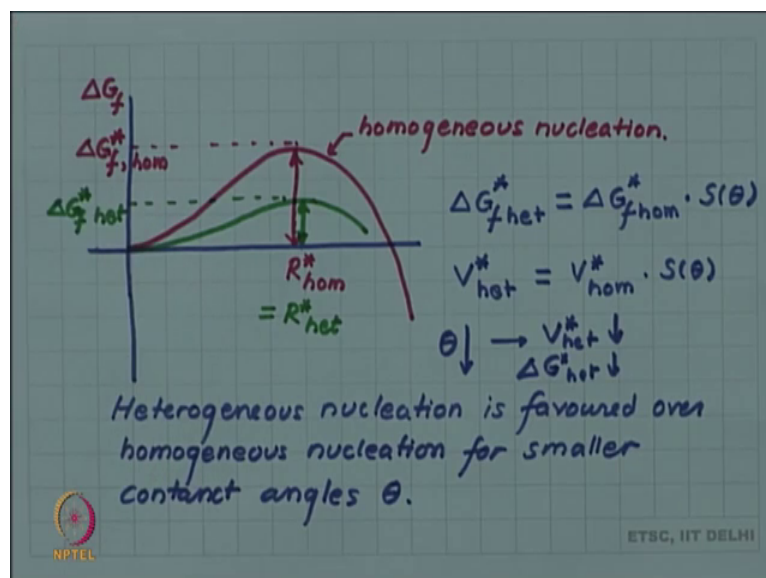 ΔG_f
ΔG*_f,hom
homogeneous nucleation.
ΔG*_f het
ΔG*_f het = ΔG*_f hom · S(θ)
R*_hom
= R*_het
V*_het = V*_hom · S(θ)
θ↓ → V*_het ↓
ΔG*_het ↓
Heterogeneous nucleation is favoured over
homogeneous nucleation for smaller
contanct angles θ.
NPTEL
ETSC, IIT DELHI